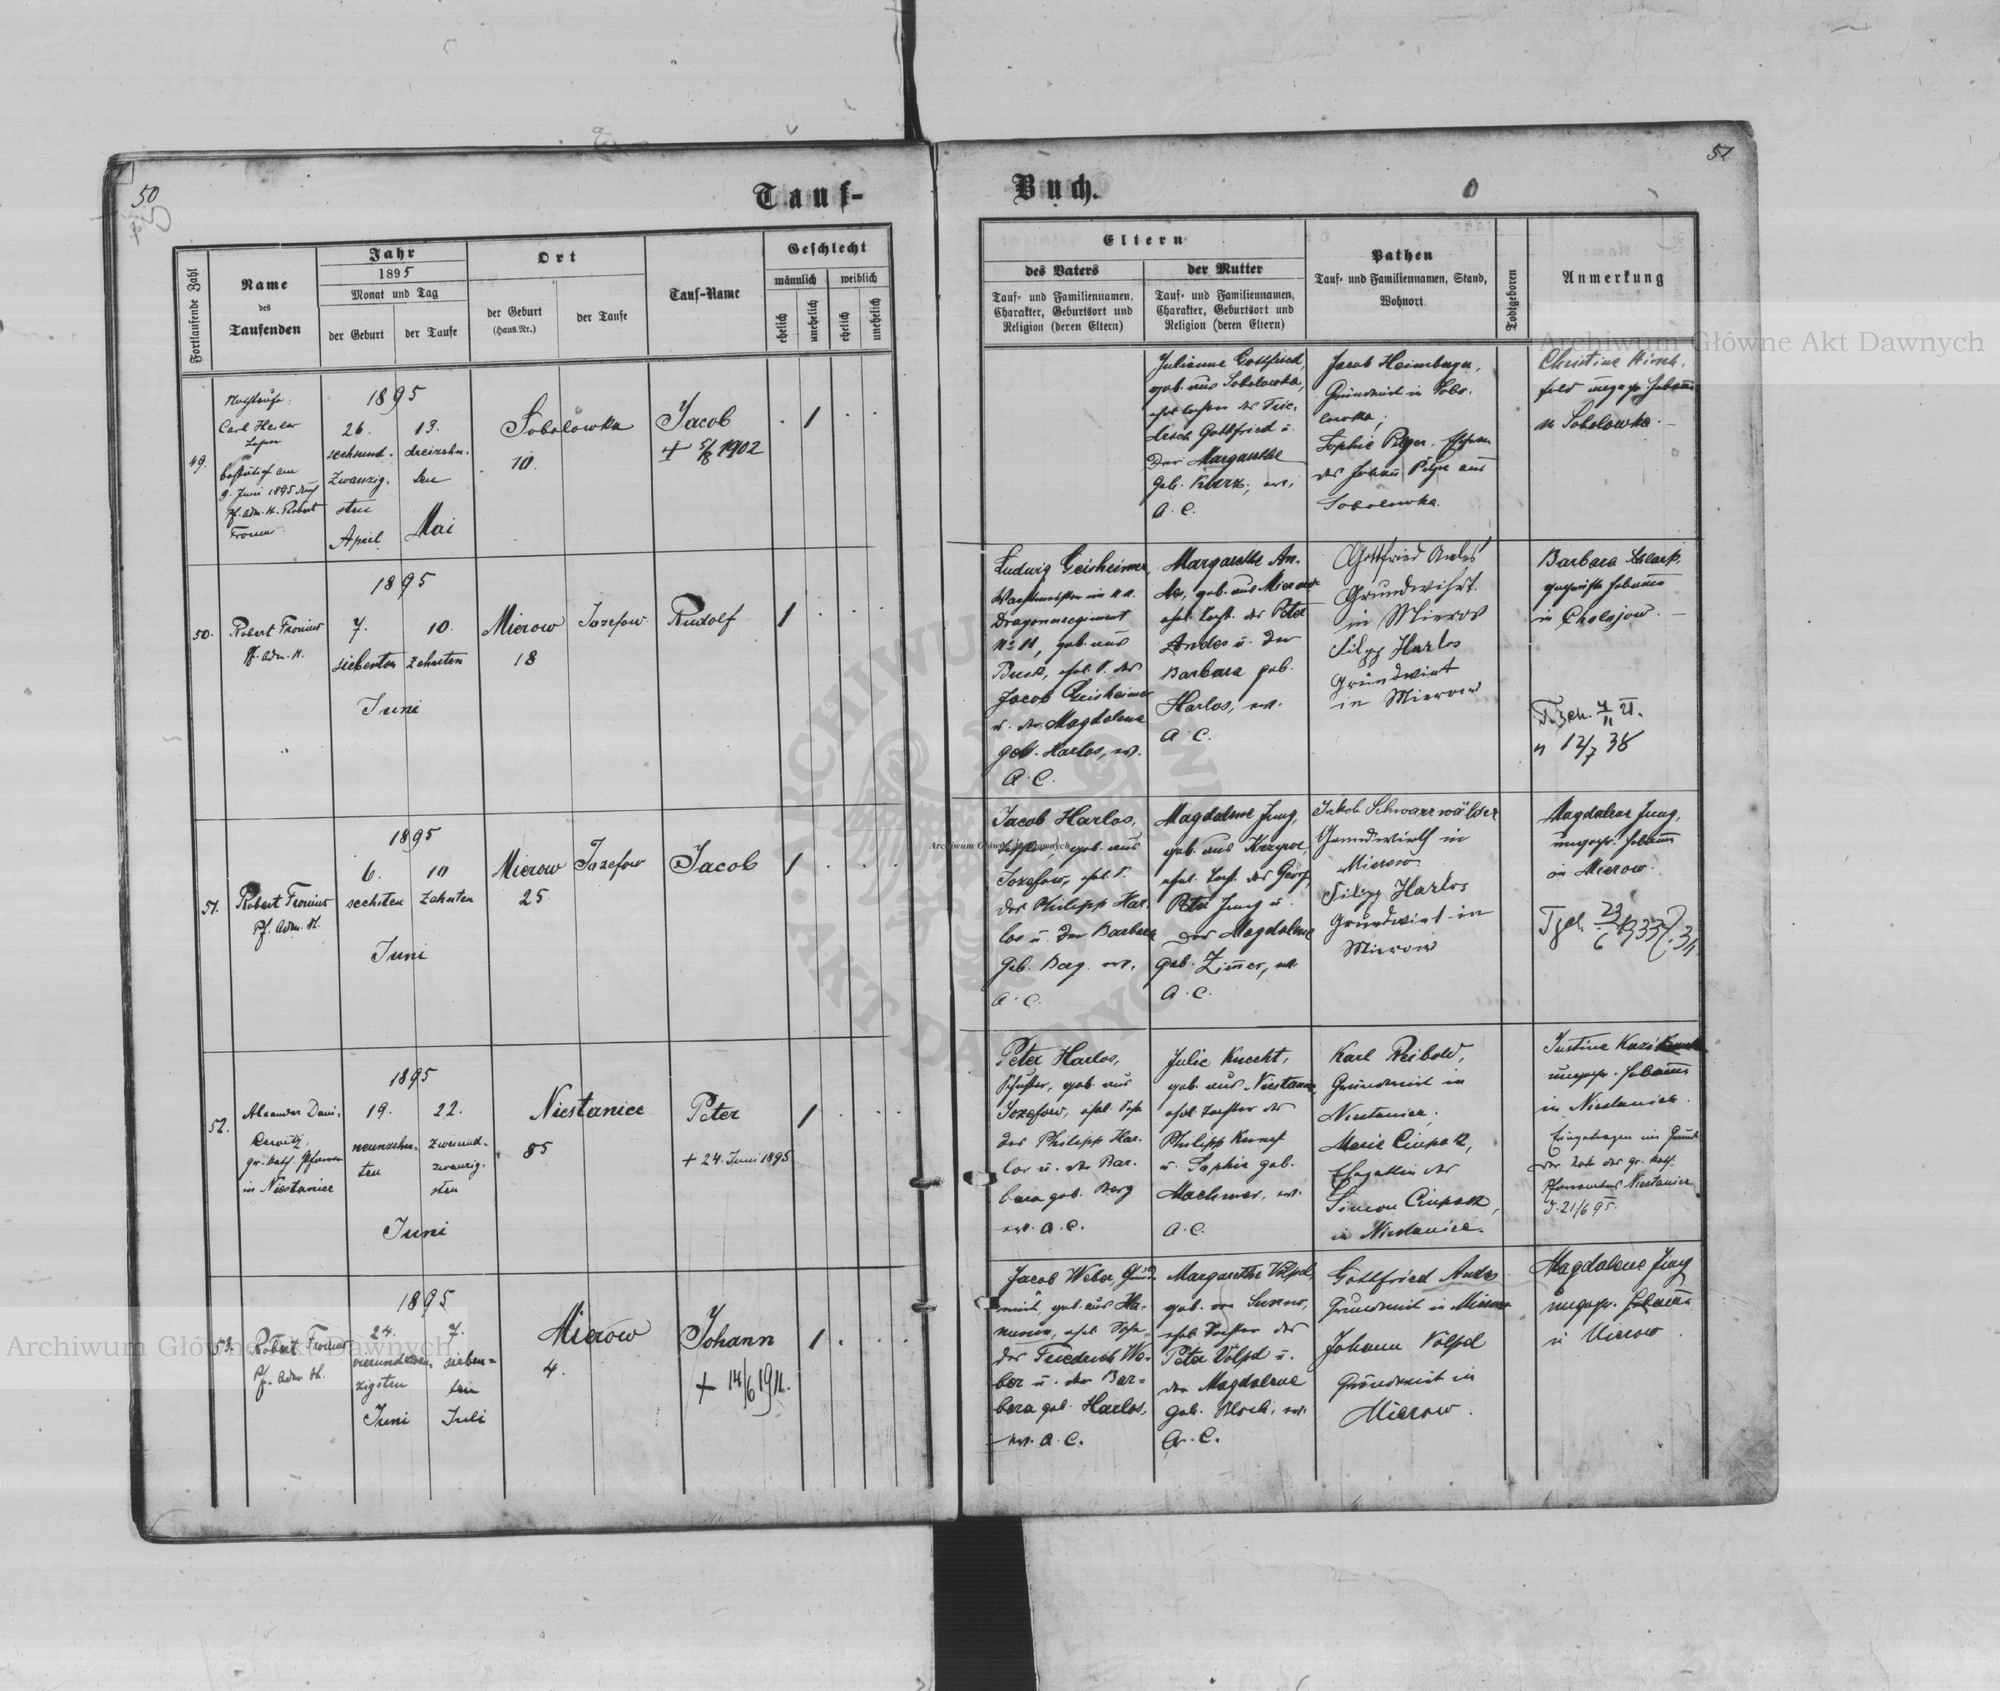 50
Tauf-
Fortlaufende Zahl
Name
des
Taufenden
Jahr
1895
Monat und Tag
der Geburt
der Taufe
Ort
der Geburt
(Haus-Nr.)
der Taufe
Tauf-Name
Geschlecht
männlich
weiblich
ehelich
unehelich
ehelich
unehelich
49.
Nothtaufe:
bestätigt am
9. Juni 1895 durch
Pf. Adm. H. Robert
Fronius
1895
26.
sechsund-
zwanzig-
sten
April
13.
dreizehn-
ten
Mai
Sobolowka
10.
Jacob
+ 5/8 1902
50.
Robert Fronius
Pf. Adm. H.
1895
7.
siebenten
10.
zehnten
Juni
Mierow
18
Jozefow
Rudolf
51.
Robert Fronius
Pf. Adm. H.
1895
6.
sechsten
10
zehnten
Juni
Mierow
25.
Jozefow
Jacob
52.
Alexander Dani-
gr. kath. Pfarrer
in Niestanice
1895
19.
neunzehn-
ten
22.
zweiund-
zwanzig-
sten
Juni
Niestanice
85
Peter
+ 24. Juni 1895
53.
Robert Fronius
Pf. Adm. H.
1895
24.
vierundzwan-
zigsten
Juni
7.
sieben-
ten
Juli
Mierow
4.
Johann
+ 14/6 1911.
51
Buch.
0
Eltern
des Vaters
Tauf- und Familiennamen,
Charakter, Geburtsort und
Religion (deren Eltern)
der Mutter
Tauf- und Familiennamen,
Charakter, Geburtsort und
Religion (deren Eltern)
Pathen
Tauf- und Familiennamen, Stand,
Wohnort
Todtgeboren
Anmerkung
Julianne Gottfried,
geb. aus Sobolowka,
ehel. Tochter des Frie-
drich Gottfried u.
der Margarethe
geb. Kurz, ev.
A. C.
Jacob Heimburger,
Grundwirt in Sobo-
lowka;
Sophie Pilger, Ehefrau
des Johann Pilger aus
Sobolowka.
Christine Hirsch-
feld ungepr. Hebamme
in Sobolowka.
Ludwig Geisheimer,
Wachtmeister im k. k.
Dragonerregiment
No 11, geb. aus
Busk, ehel. S. des
Jacob Geisheimer
u. der Magdalene
geb. Harlos, ev.
A. C.
Margarethe An-
des, geb. aus Mierow
ehel. Tocht. des Peter
Andes u. der
Barbara geb.
Harlos, ev.
A. C.
Gottfried Andes
Grundwihrt
in Mierow
Filipp Harlos
Grundwirt
in Mierow
Barbara
geprüfte Hebamme
in Cholojow.
12/7 38
Jacob Harlos,
geb. aus
Jozefow, ehel. S.
des Philipp Har-
los u. der Barbara
geb. Berg ev.
A. C.
Magdalene Jung,
geb. aus
ehel. Tocht. des Georg
Peter Jung u.
der Magdalene
geb. Zimmer, ev.
A. C.
Jakob Schwarzwälder
Grundwirth in
Mierow
Filipp Harlos
Grundwirt in
Mierow
Magdalene Jung,
ungepr. Hebamme
in Mierow.
Peter Harlos,
Schuster, geb. aus
Jozefow, ehel. Sohn
des Philipp Har-
los u. der Bar-
bara geb. Berg
ev. A. C.
Julie Knecht,
geb. aus Niestanice
ehel. Tochter des
Philipp
u. Sophie geb.
Machmer, ev.
A. C.
Karl Reibold,
Grundwirt in
Niestanice;
Marie
Ehegattin des
Simon
in Niestanice.
Justine
ungepr. Hebamme
in Niestanice.
Eingetragen im Grund
der Note des gr. kath.
Pfarramtes Niestanice
d. 21/6 95.
Jacob Weber, Grund-
wirt, geb. aus Ha-
nunin, ehel. Sohn
des Friedrich We-
ber u. der Bar-
bara geb. Harlos,
ev. A. C.
Margarethe Volpel,
geb. in
ehel. Tochter des
Peter Volpel u.
der Magdalene
geb. Bloch, ev.
A. C.
Gottfried Andes
Grundwirt in Mierow
Johann Volpel
Grundwirt in
Mierow.
Magdalene Jung
ungepr. Hebamme
in Mierow.
Archiwum Główne Akt Dawnych
Archiwum Główne Akt Dawnych
Archiwum Główne Akt Dawnych